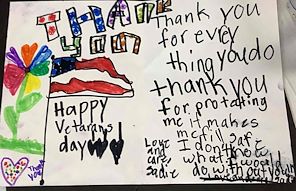 THANK
YOU
Happy
Vetarans
day
Thank you
for evrey
thing you do
thank you
for protating
me it makes
me fill safe
I don't know
what I would
do without you
Love
and
care,
Sadie
Thank
you